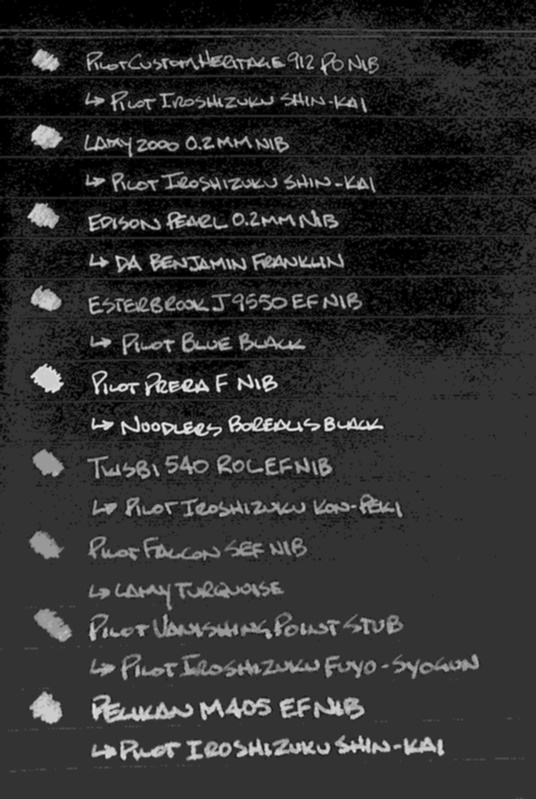 PILOT CUSTOM HERITAGE 912 PO NIB
↳ PILOT IROSHIZUKU SHIN-KAI
LAMY 2000 0.2MM NIB
↳ PILOT IROSHIZUKU SHIN-KAI
EDISON PEARL 0.2MM NIB
↳ DA BENJAMIN FRANKLIN
ESTERBROOK J 9550 EF NIB
↳ PILOT BLUE BLACK
PILOT PRERA F NIB
↳ NOODLERS BOREALIS BLACK
TWSBI 540 ROC EF NIB
↳ PILOT IROSHIZUKU KON-PEKI
PILOT FALCON SEF NIB
↳ LAMY TURQUOISE
PILOT VANISHING POINT STUB
↳ PILOT IROSHIZUKU FUYO-SYOGUN
PELIKAN M405 EF NIB
↳ PILOT IROSHIZUKU SHIN-KAI